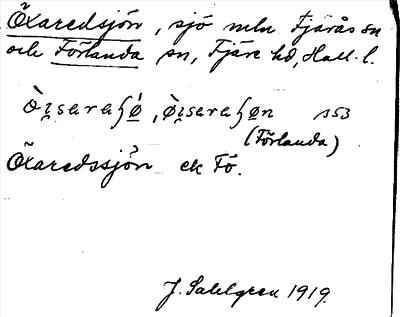 Öxaredsjön, sjö mln Fjärås sn
och Förlanda sn, Fjäre hd, Hall. l.
353
(Förlanda)
Öxaredssjön ek Fö.
J. Sahlgren 1919.